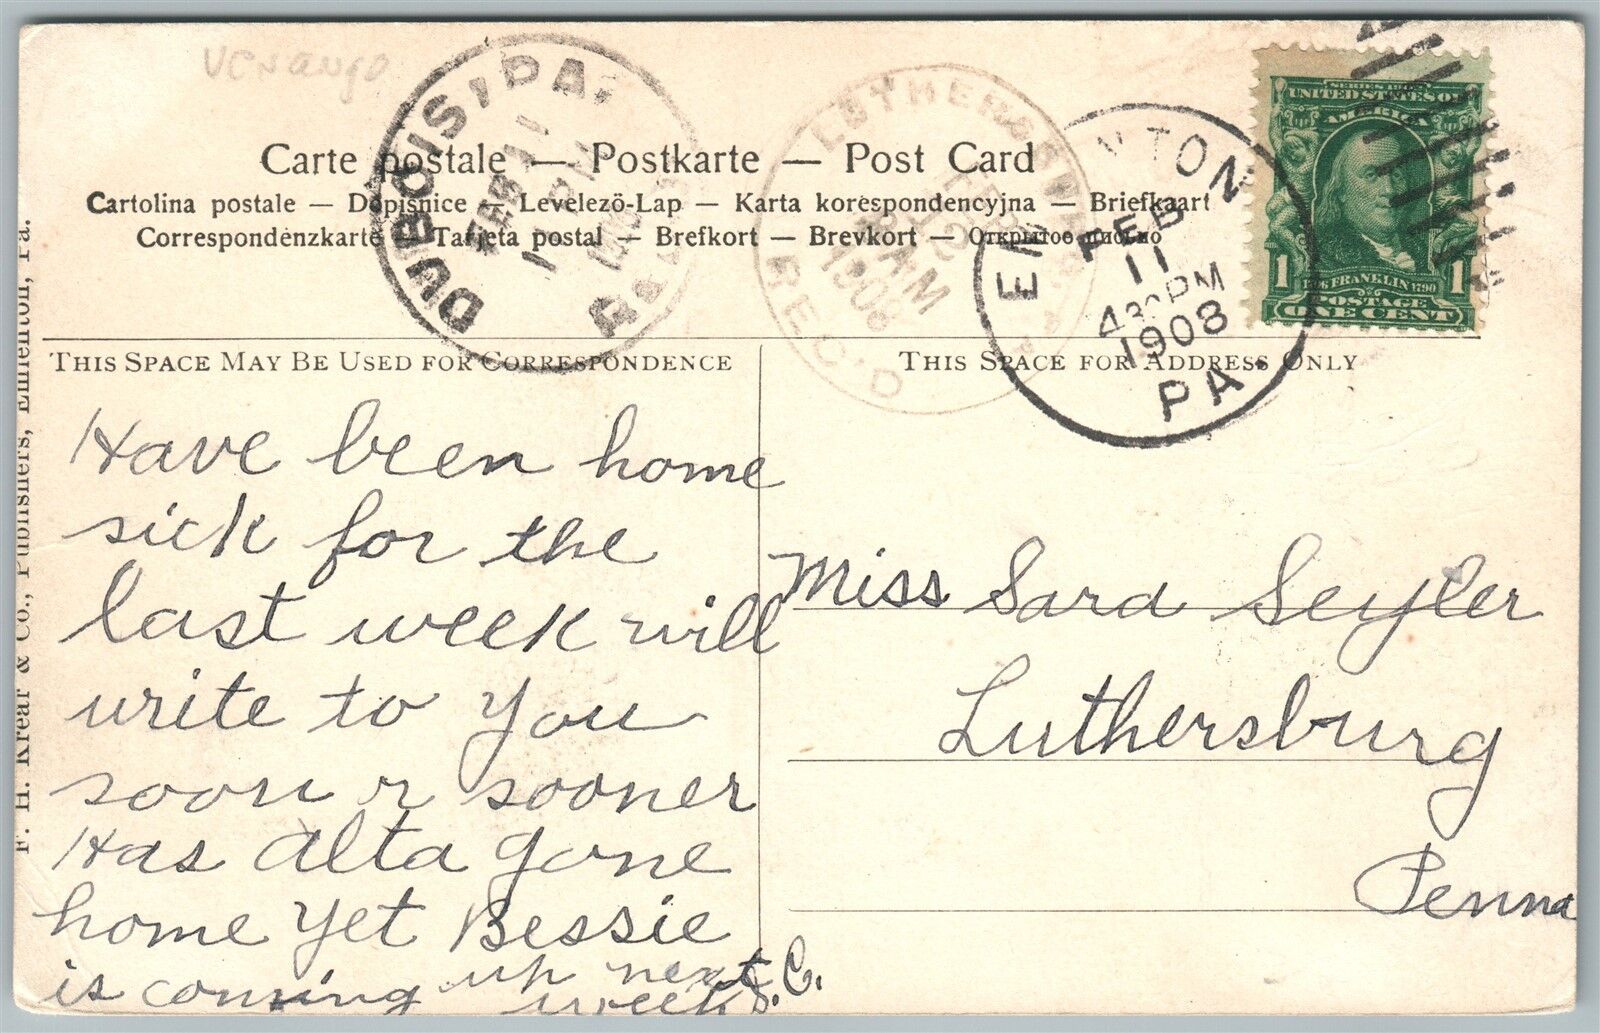 Venango
DUBOIS, PA.
FEB 11
LUTHERSBURG
AM
1908
REC'D.
FEB
11
430 PM
1908
PA.
SERIES 1902
UNITED STATES OF
AMERICA
1 1706 FRANKLIN 1790 1
POSTAGE
ONE CENT
Carte postale — Postkarte — Post Card
Cartolina postale — Dopisnice — Levelező-Lap — Karta korespondencyjna — Briefkaart
Correspondenzkarte — Tarjeta postal — Brefkort — Brevkort — Открытое письмо
THIS SPACE MAY BE USED FOR CORRESPONDENCE
THIS SPACE FOR ADDRESS ONLY
F. H. Krear & Co., Publishers, Emlenton, Pa.
Have been home
sick for the
last week will
write to you
soon r sooner
Has Alta gone
home yet Bessie
is coming up next
week S. C.
Miss Sara Seyler
Luthersburg
Penna